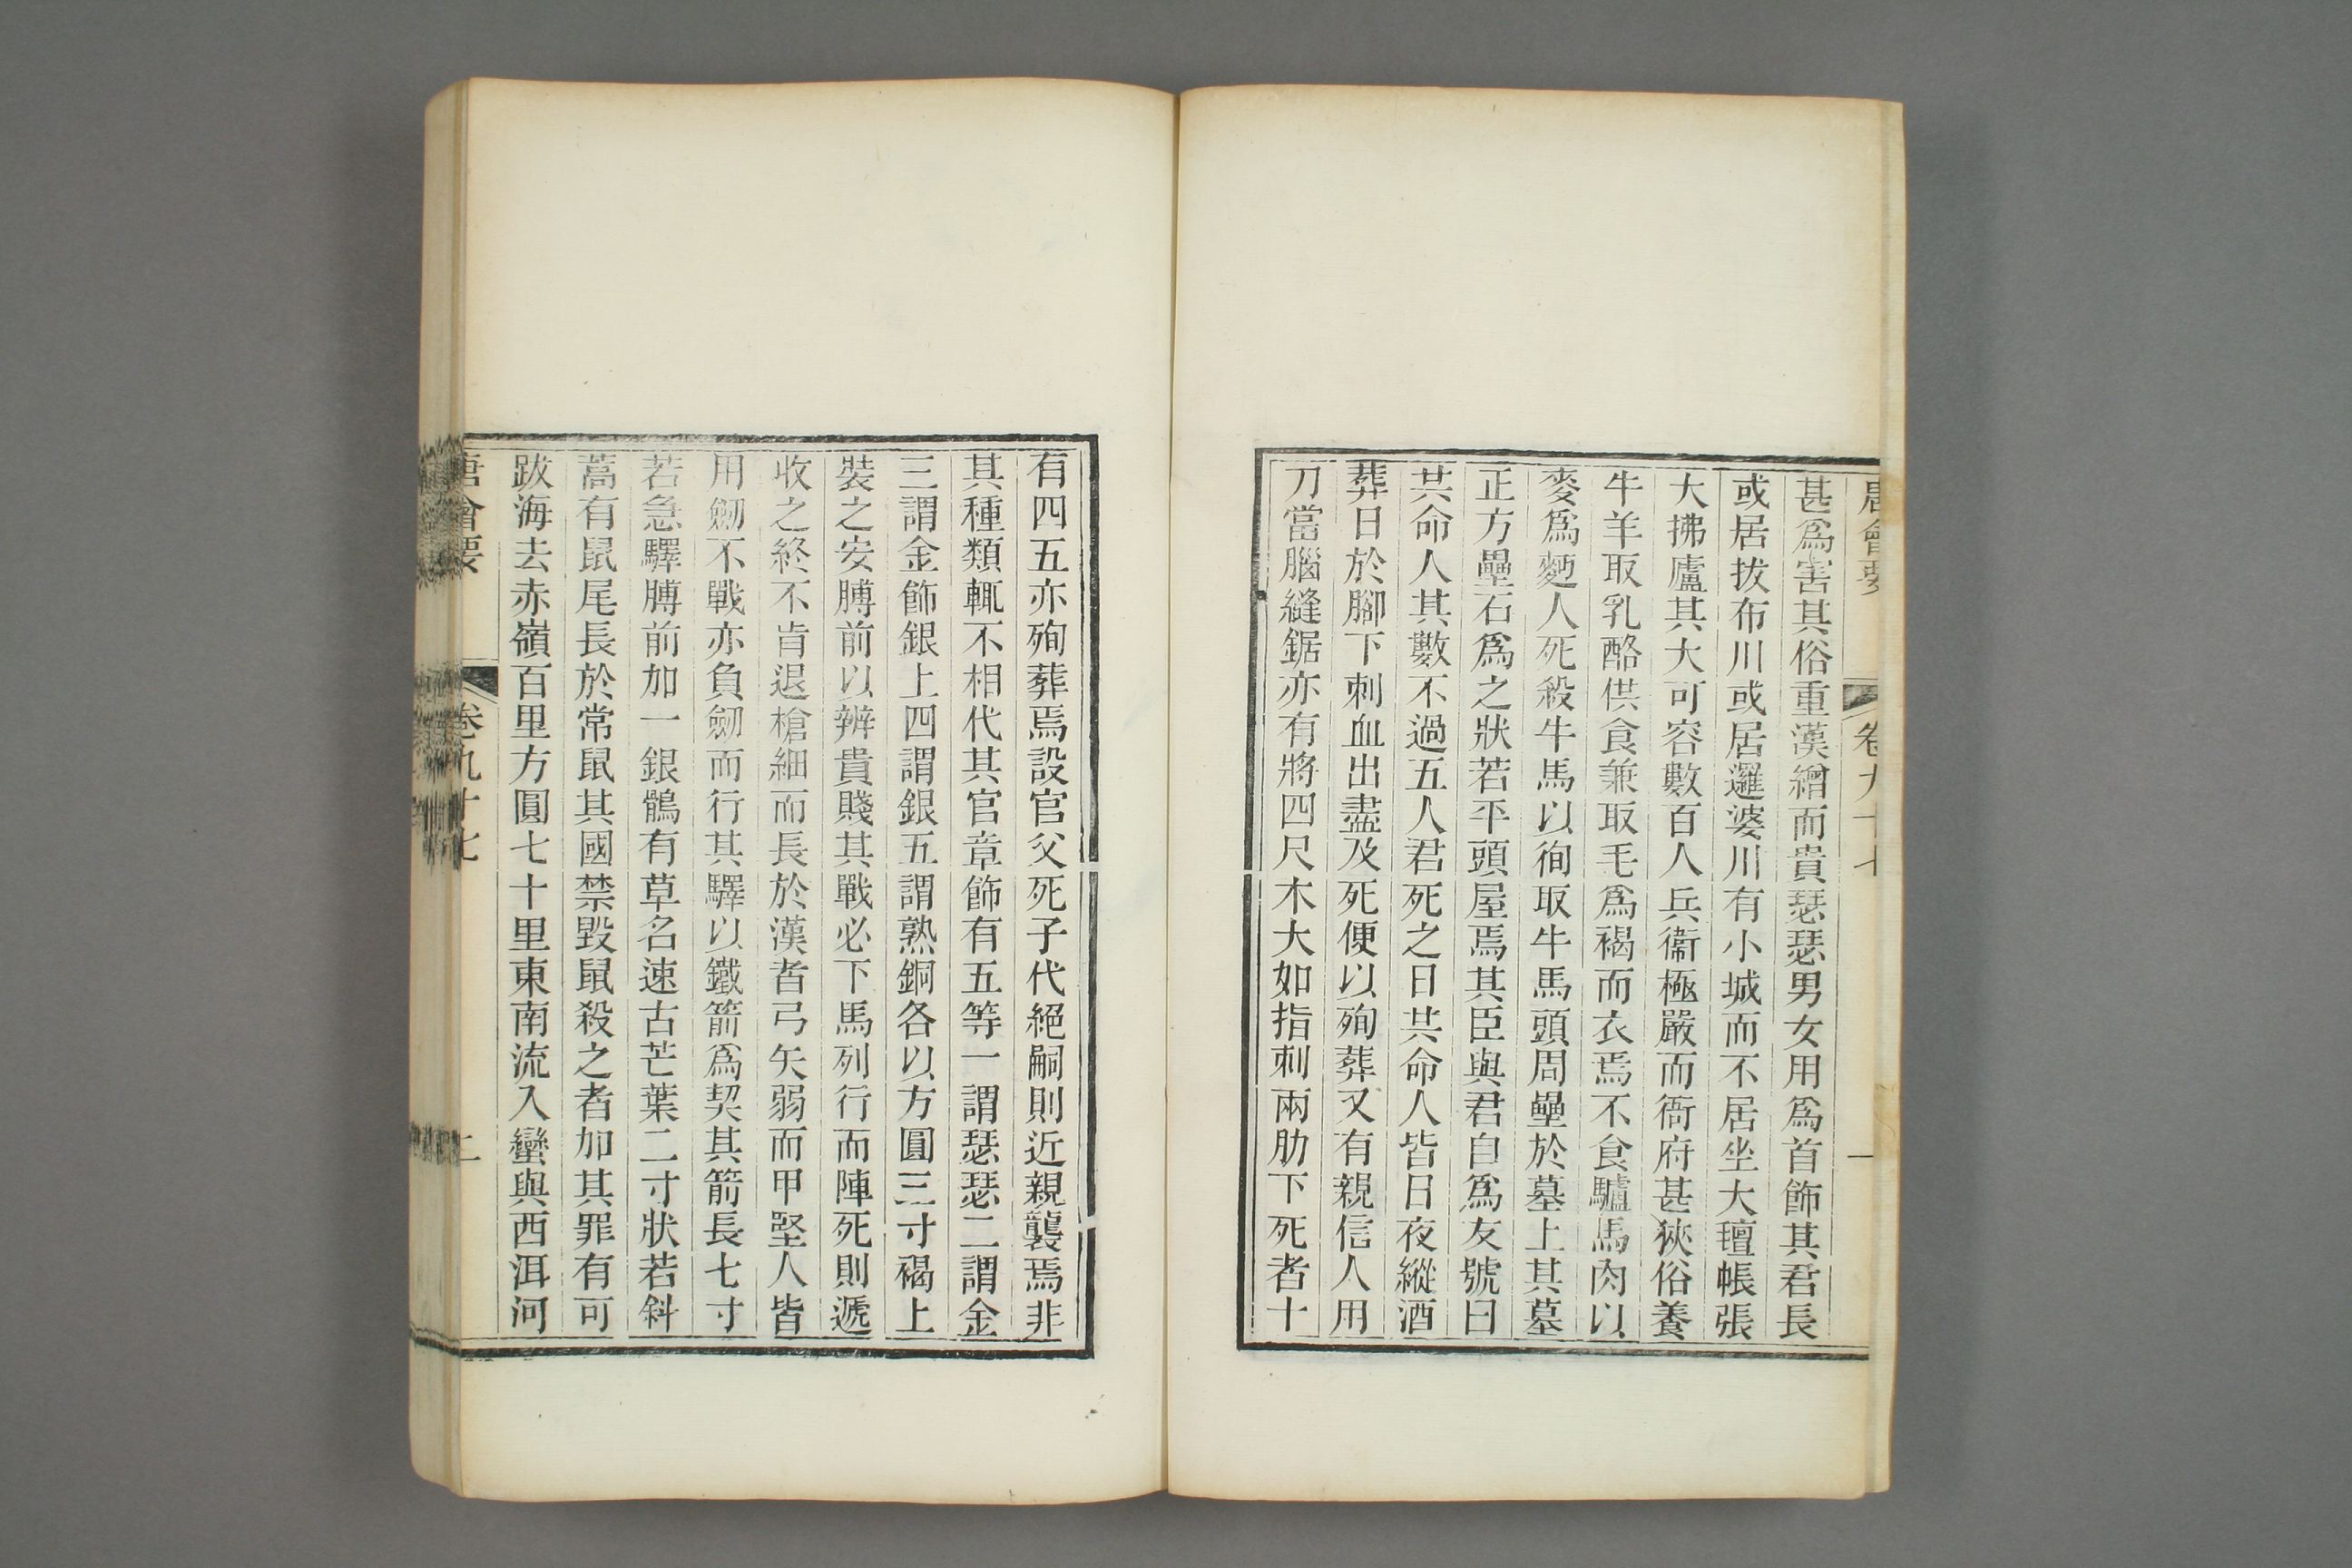 唐會要 卷九十七 一
甚爲害其俗重漢繒而貴瑟瑟男女用爲首飾其君長
或居拔布川或居邏娑川有小城而不居坐大氊帳張
大拂廬其大可容數百人兵衞極嚴而衙府甚狹俗養
牛羊取乳酪供食兼取毛爲褐而衣焉不食驢馬肉以
麥爲麪人死殺牛馬以徇取牛馬頭周壘於墓上其墓
正方壘石爲之狀若平頭屋焉其臣與君自爲友號曰
共命人其數不過五人君死之日共命人皆日夜縱酒
葬日於腳下刺血出盡及死便以殉葬又有親信人用
刀當腦縫鋸亦有將四尺木大如指刺兩肋下死者十
有四五亦殉葬焉設官父死子代絕嗣則近親襲焉非
其種類輒不相代其官章飾有五等一謂瑟瑟二謂金
三謂金飾銀上四謂銀五謂熟銅各以方圓三寸褐上
裝之安膊前以辨貴賤其戰必下馬列行而陣死則遞
收之終不肯退槍細而長於漢者弓矢弱而甲堅人皆
用劒不戰亦負劒而行其驛以鐵箭爲契其箭長七寸
若急驛膊前加一銀鶻有草名速古芒葉二寸狀若斜
蒿有鼠尾長於常鼠其國禁毀鼠殺之者加其罪有可
跋海去赤嶺百里方圓七十里東南流入蠻與西洱河
唐會要 卷九十七 二